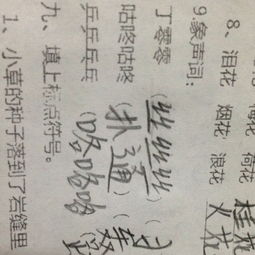 梅花 荷花 桂花
8、泪花 烟花 浪花 火花
9.象声词:
丁零零 (丝丝丝) (
咕咚咕咚 (扑通) (
乒乒乓乓 哈哈哈
九、填上标点符号。
1、小草的种子落到了岩缝里